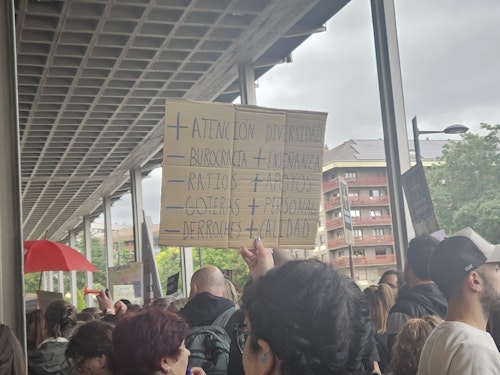 + ATENCIÓN DIVERSIDAD
- BUROCRACIA + ENSEÑANZA
- RATIOS + APOYOS
- GOTERAS + PERSONAL
- DERROCHES + CALIDAD